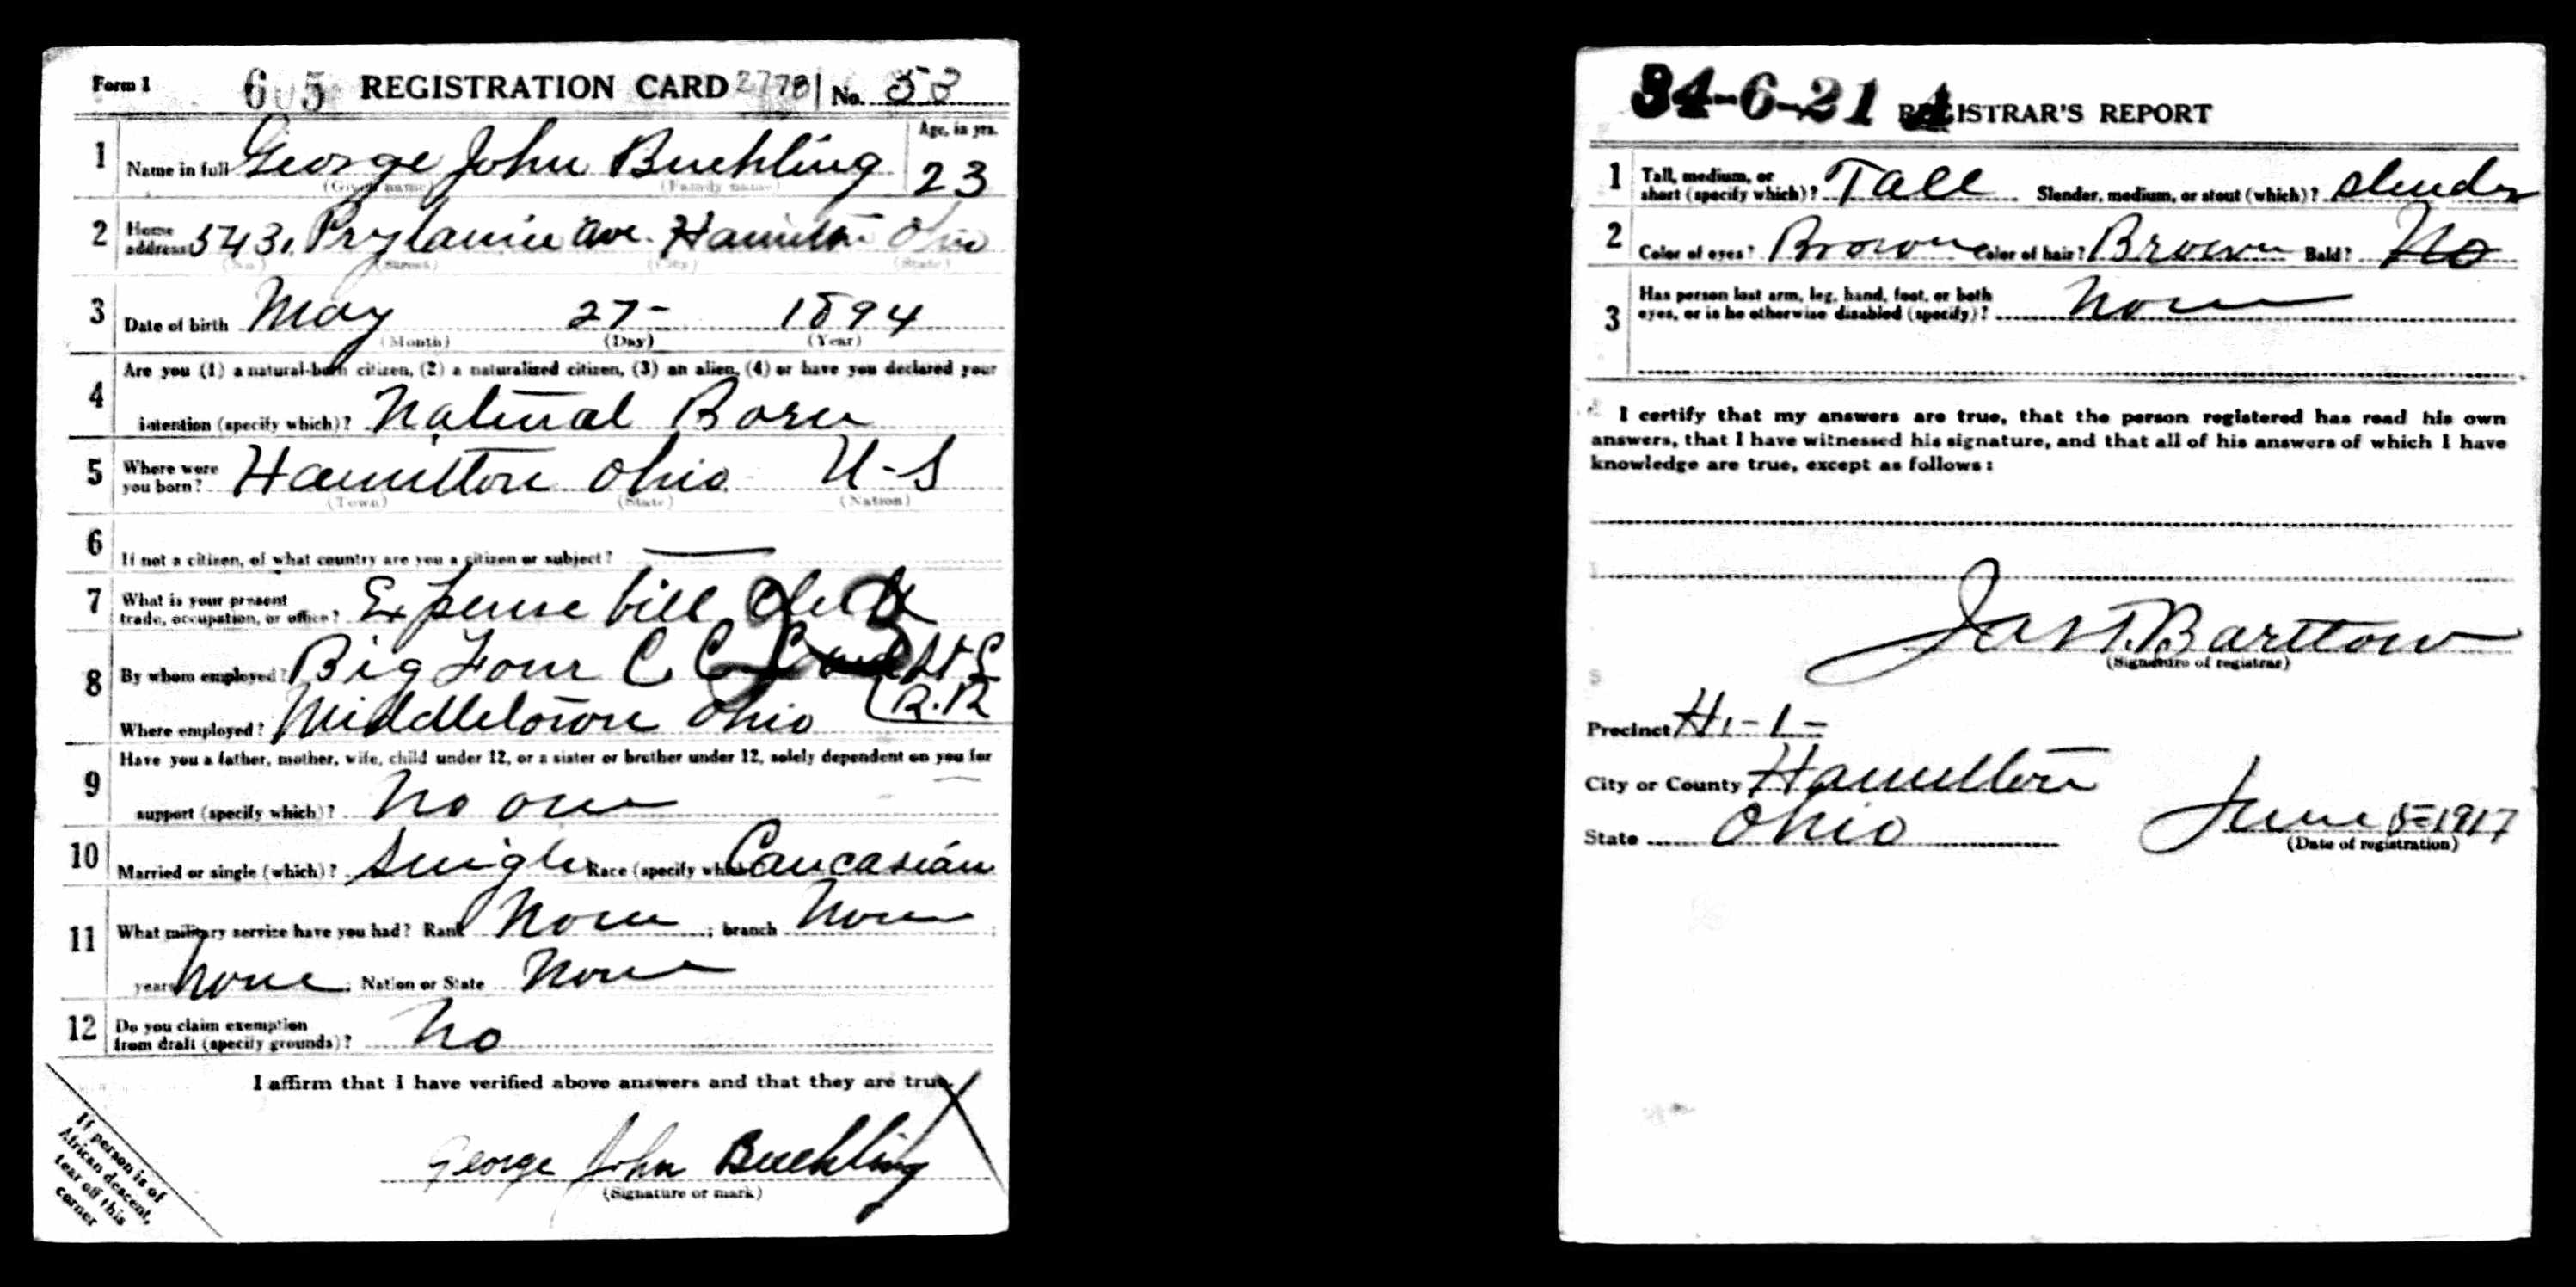 Form 1 605 REGISTRATION CARD 2778 No. 53
1 Name in full George John Buehling Age, in yrs. 23
(Given name) (Family name)
2 Home address 543 Prytania Ave. Hamilton Ohio
(No.) (Street) (City) (State)
3 Date of birth May 27- 1894
(Month) (Day) (Year)
4 Are you (1) a natural-born citizen, (2) a naturalized citizen, (3) an alien, (4) or have you declared your
intention (specify which)? Natural Born
5 Where were you born? Hamilton Ohio U-S
(Town) (State) (Nation)
6 If not a citizen, of what country are you a citizen or subject?
7 What is your present
trade, occupation, or office? Expense bill Clerk
8 By whom employed? Big Four C C C and St L
R.R
Where employed? Middletown Ohio
9 Have you a father, mother, wife, child under 12, or a sister or brother under 12, solely dependent on you for
support (specify which)? No one
10 Married or single (which)? Single Race (specify which) Caucasian
11 What military service have you had? Rank None ; branch None ;
years None ; Nation or State None
12 Do you claim exemption
from draft (specify grounds)? No
I affirm that I have verified above answers and that they are true.
George John Buehling
(Signature or mark)
If person is of
African descent,
tear off this
corner
34-6-21 A REGISTRAR'S REPORT
1 Tall, medium, or
short (specify which)? Tall Slender, medium, or stout (which)? slender
2 Color of eyes? Brown Color of hair? Brown Bald? No
3 Has person lost arm, leg, hand, foot, or both
eyes, or is he otherwise disabled (specify)? None
I certify that my answers are true, that the person registered has read his own
answers, that I have witnessed his signature, and that all of his answers of which I have
knowledge are true, except as follows:
Jas T. Barttow
(Signature of registrar)
Precinct H-1-
City or County Hamilton
State Ohio June 5-1917
(Date of registration)